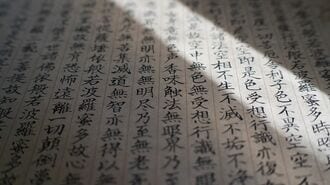 若波羅蜜多時照
利子色不異空空
空即是色受想行識亦復
空相不生不滅不垢不
故空中無色無受想行識無
聲香味觸法無眼界乃至
無明亦無無明盡乃至無老
苦集滅道無智亦無得以
埵依般若波羅蜜多故心
恐怖遠離一切顛倒
佛依般若波羅蜜多
故知般